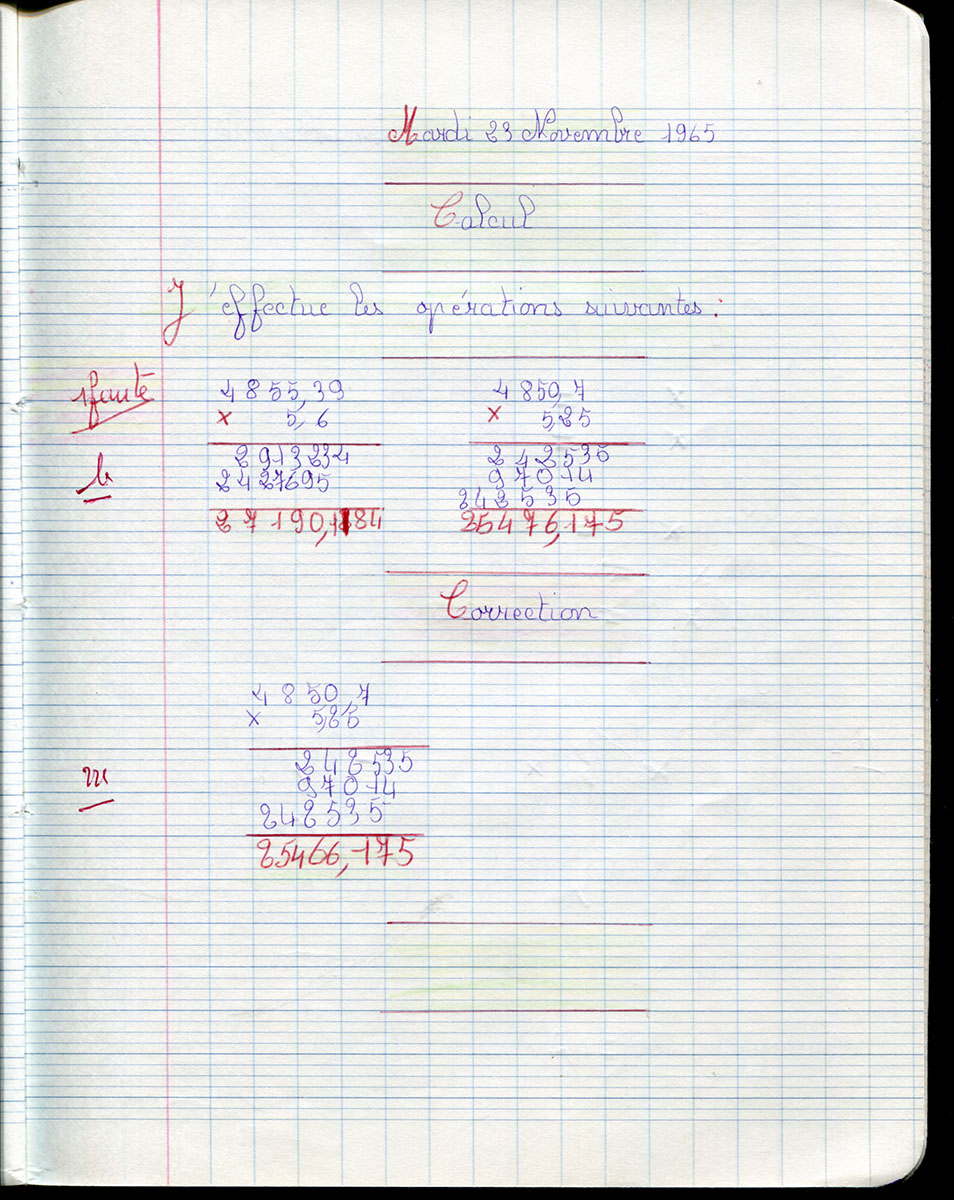 Mardi 23 Novembre 1965
Calcul
J'effectue les opérations suivantes :
1 faute
4855,39 4850,7
× 5,6 × 5,25
2913234 242535
2427695 97014
b
242535
27190,184 25476,175
Correction
4850,7
× 5,25
242535
97014
242535
25466,175